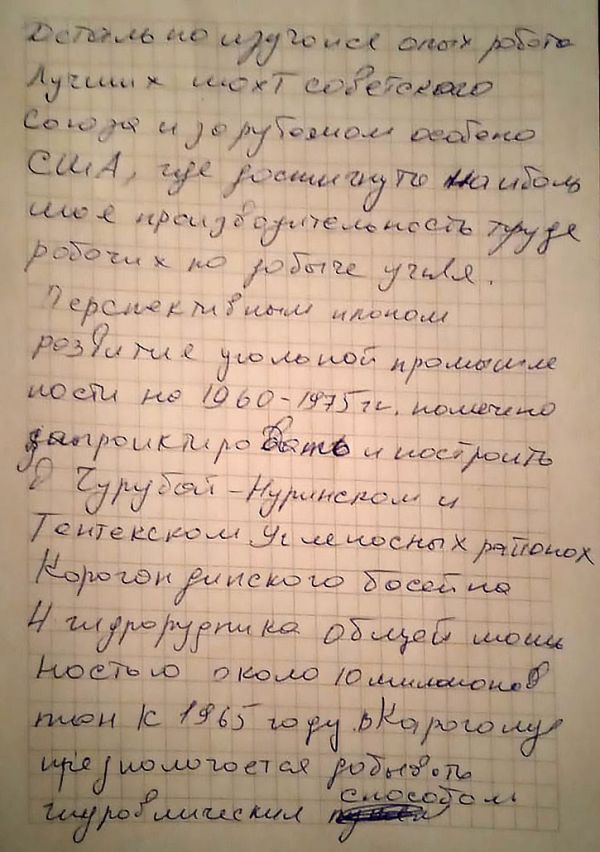 Детально изучался опыт работы
лучших шахт советского
Союза и зарубежном особено
США, где достигнута наиболь
шая производительность труда
рабочих по добыче угля.
Перспективным планом
развития угольной промышле
ности на 1960-1975 гг. намечено
запроиктировать и построить
в Чурубай-Нуринском и
Тентекском угленосных районах
Карагандинского басейна
4 гидрорудника общей мощ
ностью около 10 миллионов
тонн к 1965 году. в Караганде
предпологается добывать
гидровлическим способом